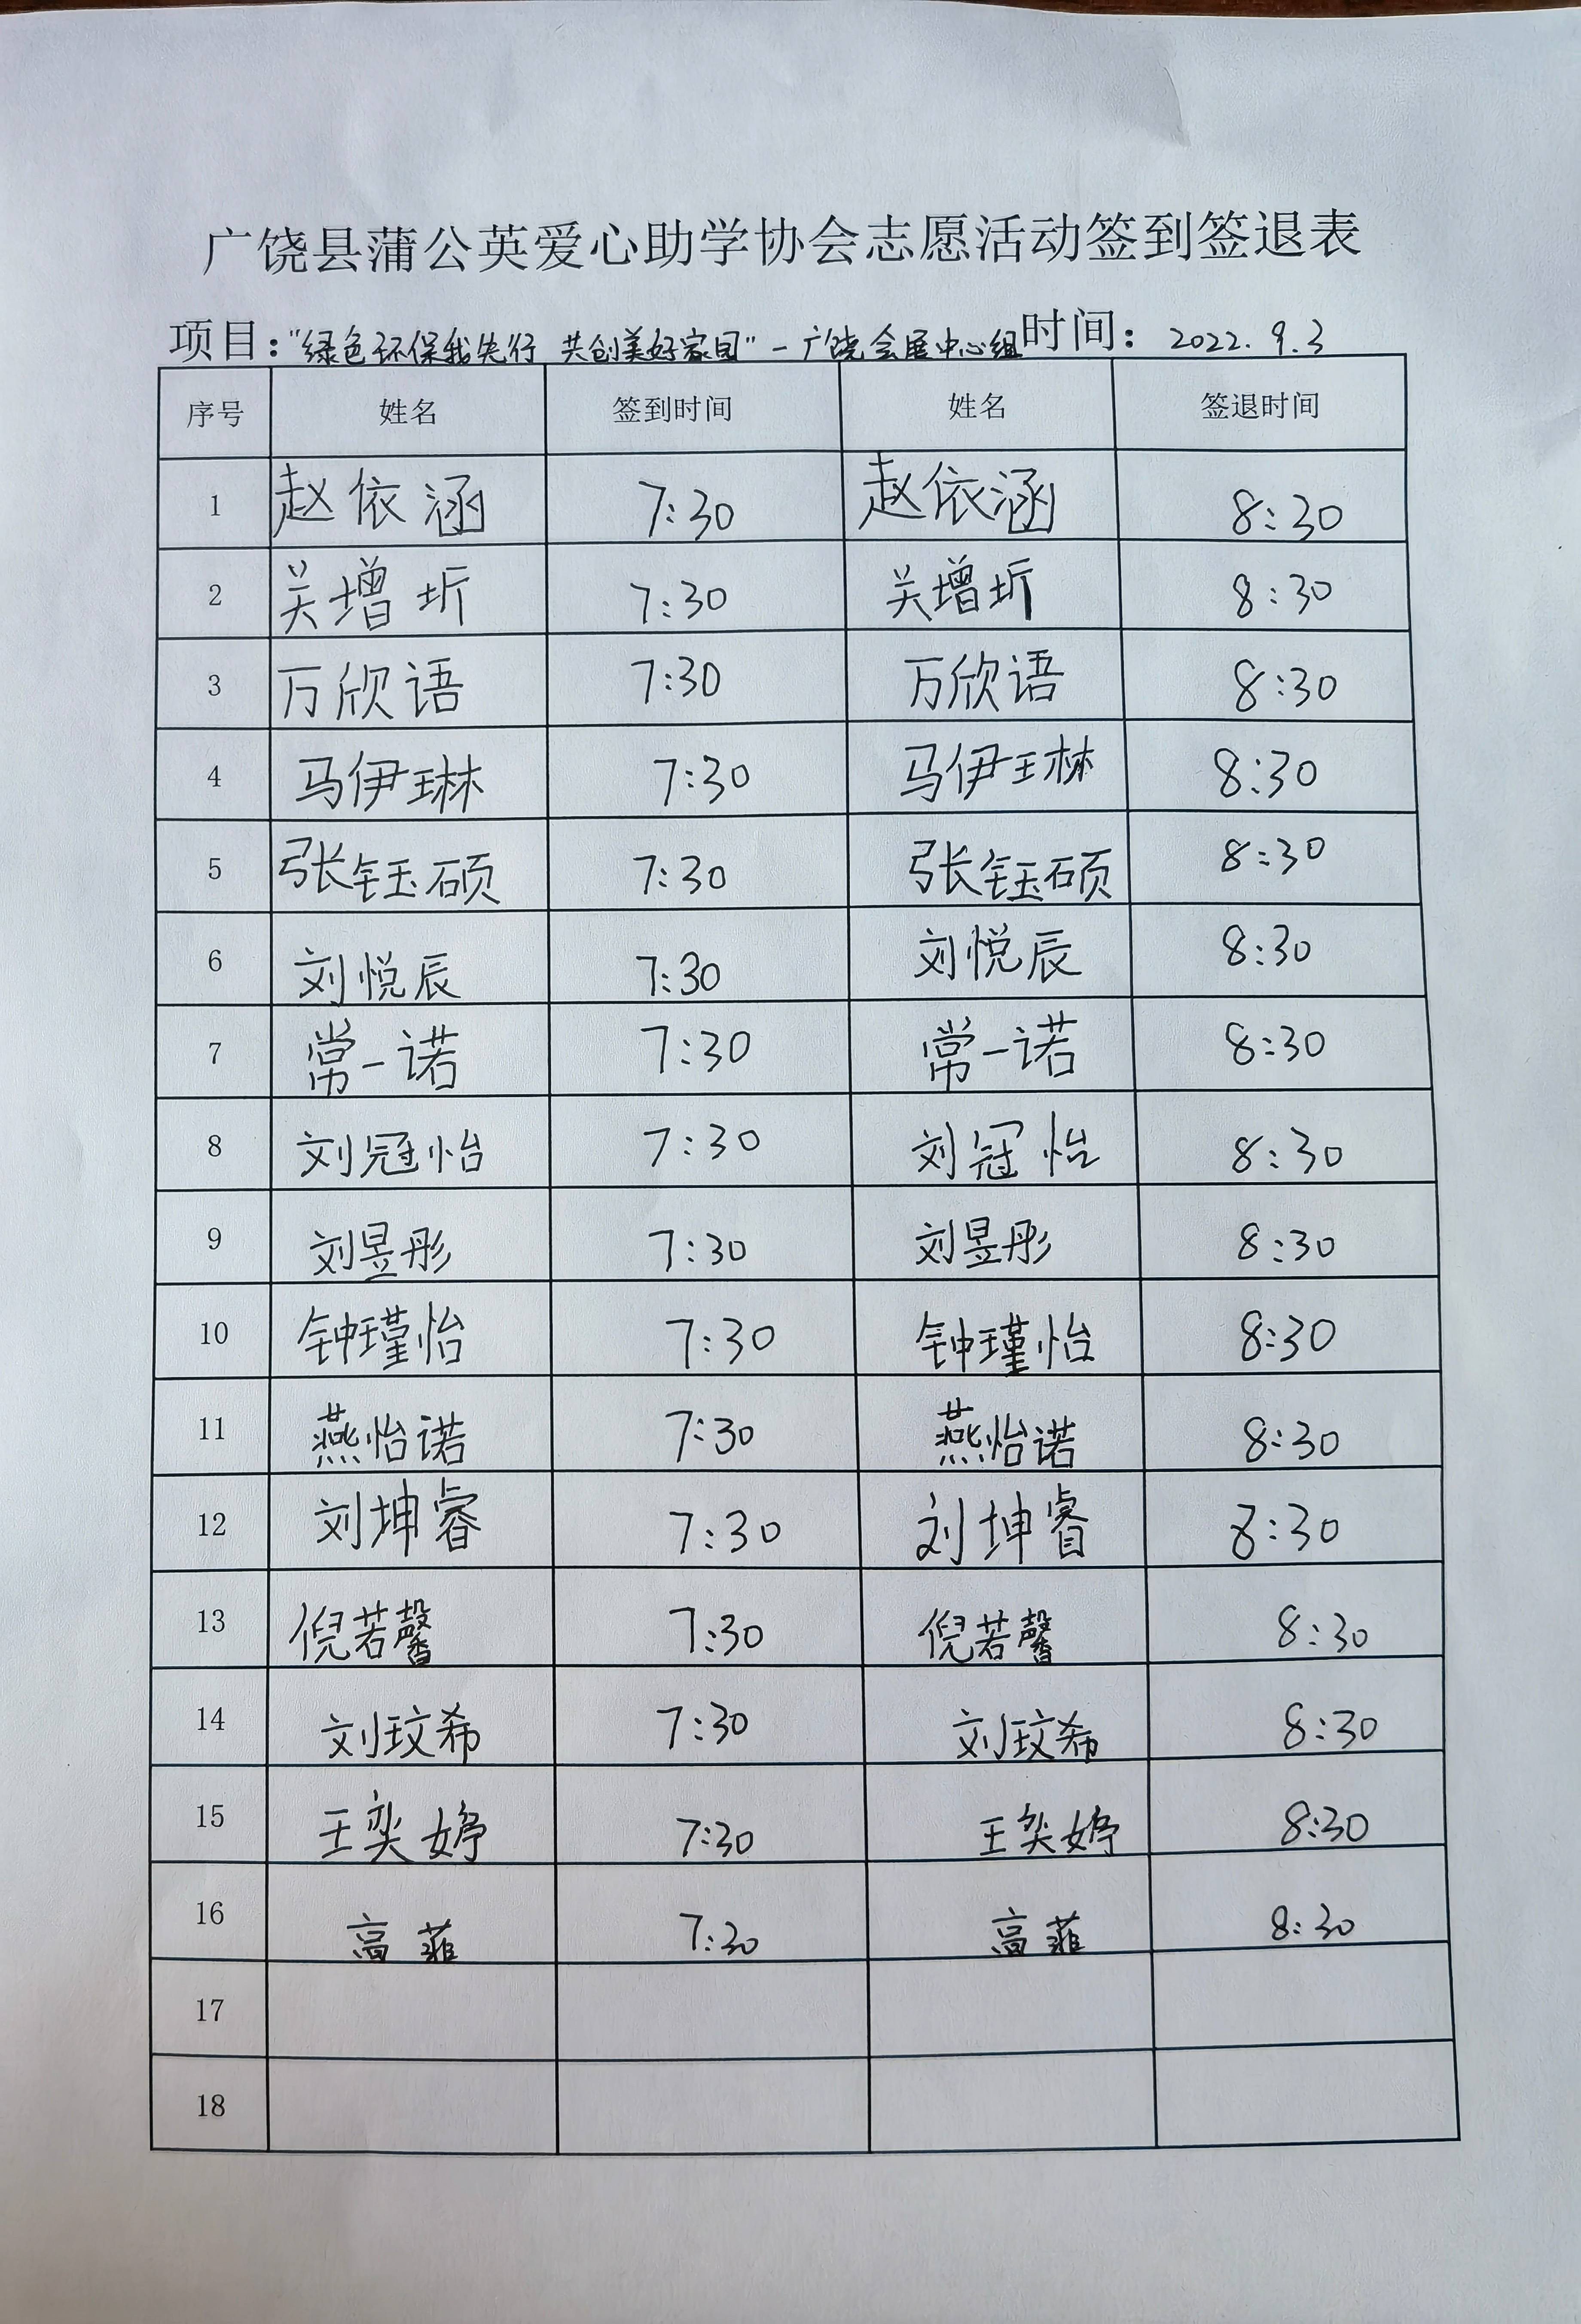 广饶县蒲公英爱心助学协会志愿活动签到签退表
项目："绿色环保我先行 共创美好家园"-广饶会展中心组时间：2022.9.3
序号 姓名 签到时间 姓名 签退时间
1 赵依涵 7:30 赵依涵 8:30
2 关增圻 7:30 关增圻 8:30
3 万欣语 7:30 万欣语 8:30
4 马伊琳 7:30 马伊琳 8:30
5 张钰硕 7:30 张钰硕 8:30
6 刘悦辰 7:30 刘悦辰 8:30
7 常一诺 7:30 常一诺 8:30
8 刘冠怡 7:30 刘冠怡 8:30
9 刘昱彤 7:30 刘昱彤 8:30
10 钟瑾怡 7:30 钟瑾怡 8:30
11 燕怡诺 7:30 燕怡诺 8:30
12 刘坤睿 7:30 刘坤睿 8:30
13 倪若馨 7:30 倪若馨 8:30
14 刘玟希 7:30 刘玟希 8:30
15 王奕婷 7:30 王奕婷 8:30
16 高菲 7:30 高菲 8:30
17
18